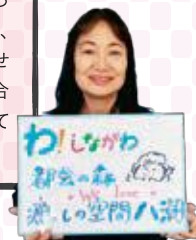 、
せ
合
て
わ!しながわ
都会の森
We love
癒しの空間八潮